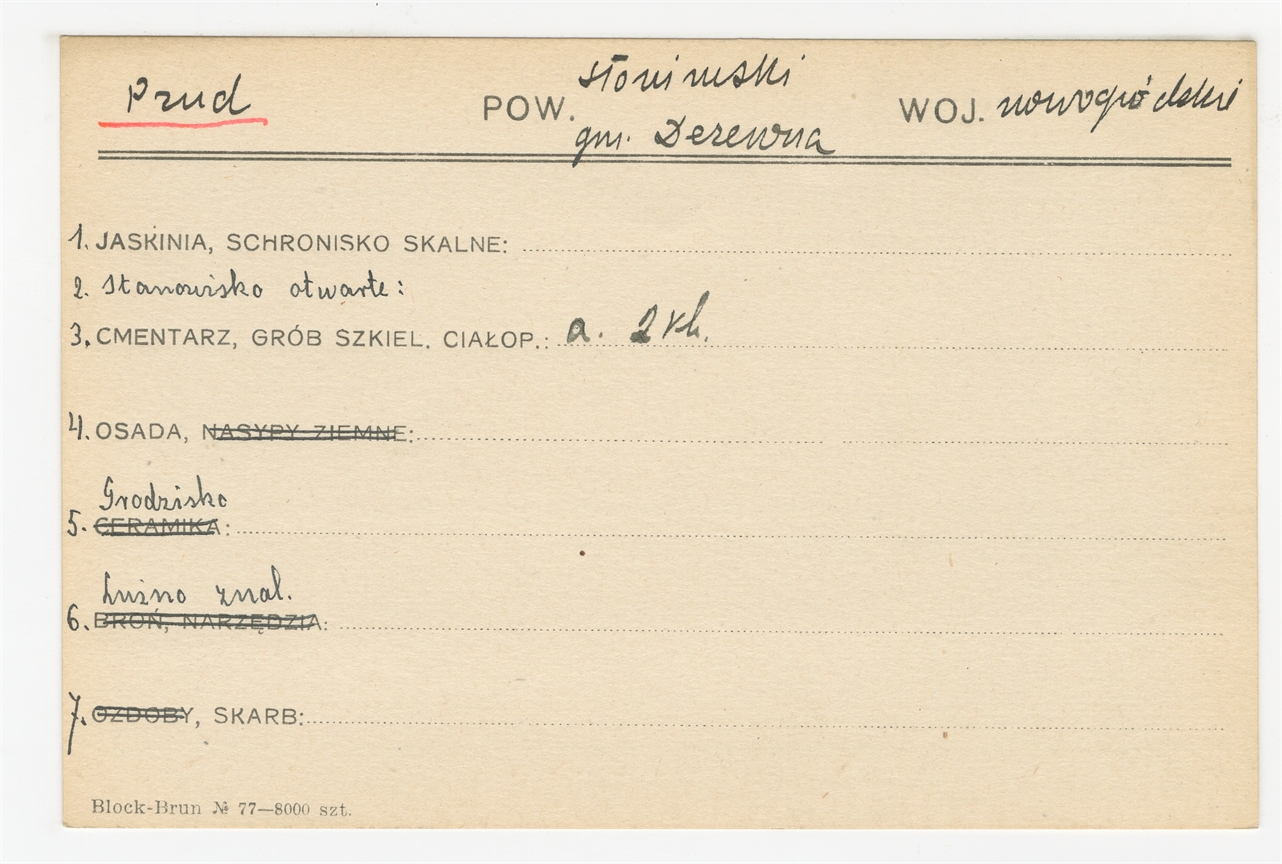 Prud POW. słonimski WOJ. nowogródzkie
gm. Derewna
1. JASKINIA, SCHRONISKO SKALNE:
2. Stanowisko otwarte:
3. CMENTARZ, GRÓB SZKIEL. CIAŁOP.: a.
4. OSADA, NASYPY ZIEMNE:
Grodzisko
5. CERAMIKA:
Luźno znal.
6. BROŃ, NARZĘDZIA:
7. OZDOBY, SKARB:
Block-Brun № 77—8000 szt.